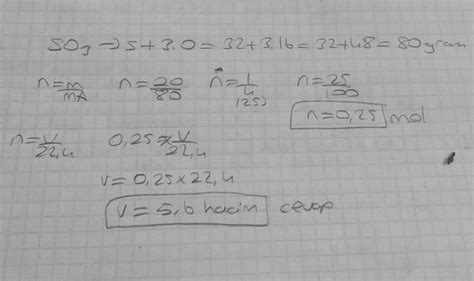 SO3 → S + 3.O = 32 + 3.16 = 32 + 48 = 80 gram
n = m/MA n = 20/80 n = 1/4 (25) n = 25/100
n = 0,25 mol
n = V/22,4 0,25 = V/22,4
V = 0,25 x 22,4
V = 5,6 hacim cevap